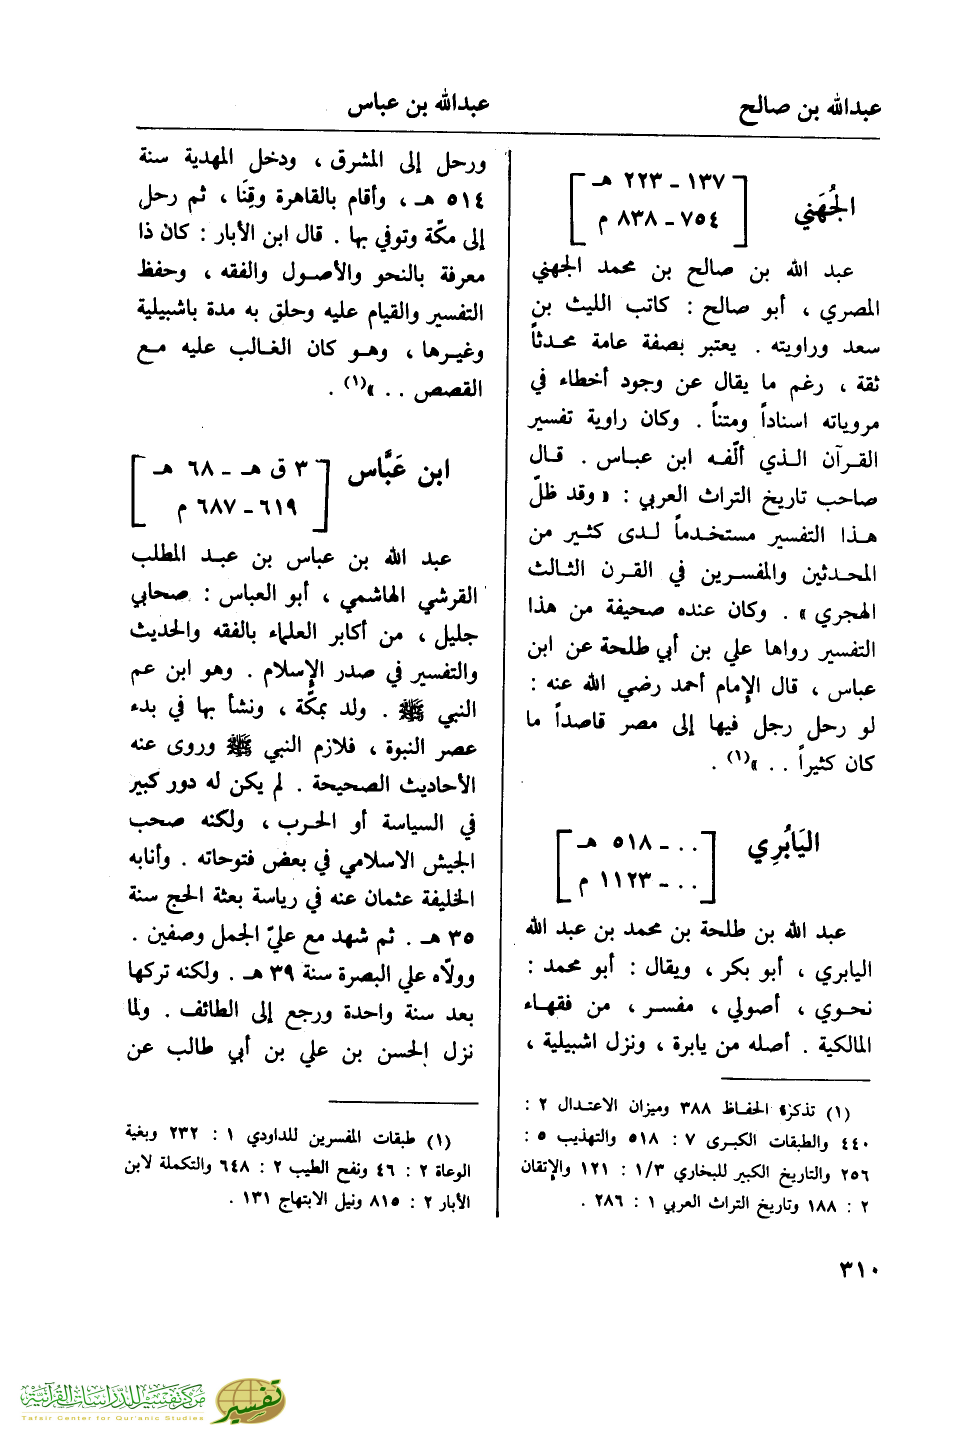 عبدالله بن صالح
عبدالله بن عباس
الجُهَني
[ ١٣٧ ـ ٢٢٣ هـ
٧٥٤ ـ ٨٣٨ م ]
عبد الله بن صالح بن محمد الجهني
المصري ، أبو صالح : كاتب الليث بن
سعد وراويته . يعتبر بصفة عامة محدثاً
ثقة ، رغم ما يقال عن وجود أخطاء في
مروياته اسناداً ومتناً . وكان راوية تفسير
القرآن الذي ألّفه ابن عباس . قال
صاحب تاريخ التراث العربي : « وقد ظلّ
هذا التفسير مستخدماً لدى كثير من
المحدثين والمفسرين في القرن الثالث
الهجري » . وكان عنده صحيفة من هذا
التفسير رواها علي بن أبي طلحة عن ابن
عباس ، قال الإمام أحمد رضي الله عنه :
لو رحل رجل فيها إلى مصر قاصداً ما
كان كثيراً . . »(١) .
اليَابُرِي
[ . . ـ ٥١٨ هـ
. . ـ ١١٢٣ م ]
عبد الله بن طلحة بن محمد بن عبد الله
اليابري ، أبو بكر ، ويقال : أبو محمد :
نحوي ، أصولي ، مفسر ، من فقهاء
المالكية . أصله من يابرة ، ونزل اشبيلية ،
(١) تذكرة الحفاظ ٣٨٨ وميزان الاعتدال ٢ :
٤٤٠ والطبقات الكبرى ٧ : ٥١٨ والتهذيب ٥ :
٢٥٦ والتاريخ الكبير للبخاري ١/٣ : ١٢١ والإتقان
٢ : ١٨٨ وتاريخ التراث العربي ١ : ٢٨٦ .
ورحل إلى المشرق ، ودخل المهدية سنة
٥١٤ هـ ، وأقام بالقاهرة وقِنَا ، ثم رحل
إلى مكّة وتوفي بها . قال ابن الأبار : كان ذا
معرفة بالنحو والأصول والفقه ، وحفظ
التفسير والقيام عليه وحلق به مدة باشبيلية
وغيرها ، وهو كان الغالب عليه مع
القصص . . »(١) .
ابن عَبَّاس
[ ٣ ق هـ ـ ٦٨ هـ
٦١٩ ـ ٦٨٧ م ]
عبد الله بن عباس بن عبد المطلب
القرشي الهاشمي ، أبو العباس : صحابي
جليل ، من أكابر العلماء بالفقه والحديث
والتفسير في صدر الإسلام . وهو ابن عم
النبي ﷺ . ولد بمكّة ، ونشأ بها في بدء
عصر النبوة ، فلازم النبي ﷺ وروى عنه
الأحاديث الصحيحة . لم يكن له دور كبير
في السياسة أو الحرب ، ولكنه صحب
الجيش الاسلامي في بعض فتوحاته . وأنابه
الخليفة عثمان عنه في رياسة بعثة الحج سنة
٣٥ هـ . ثم شهد مع عليّ الجمل وصفين .
وولّاه علي البصرة سنة ٣٩ هـ . ولكنه تركها
بعد سنة واحدة ورجع إلى الطائف . ولما
نزل الحسن بن علي بن أبي طالب عن
(١) طبقات المفسرين للداودي ١ : ٢٣٢ وبغية
الوعاة ٢ : ٤٦ ونفح الطيب ٢ : ٦٤٨ والتكملة لابن
الأبار ٢ : ٨١٥ ونيل الابتهاج ١٣١ .
٣١٠
مركز تفسير للدراسات القرآنية
Tafsir Center for Qur'anic Studies
تفسير